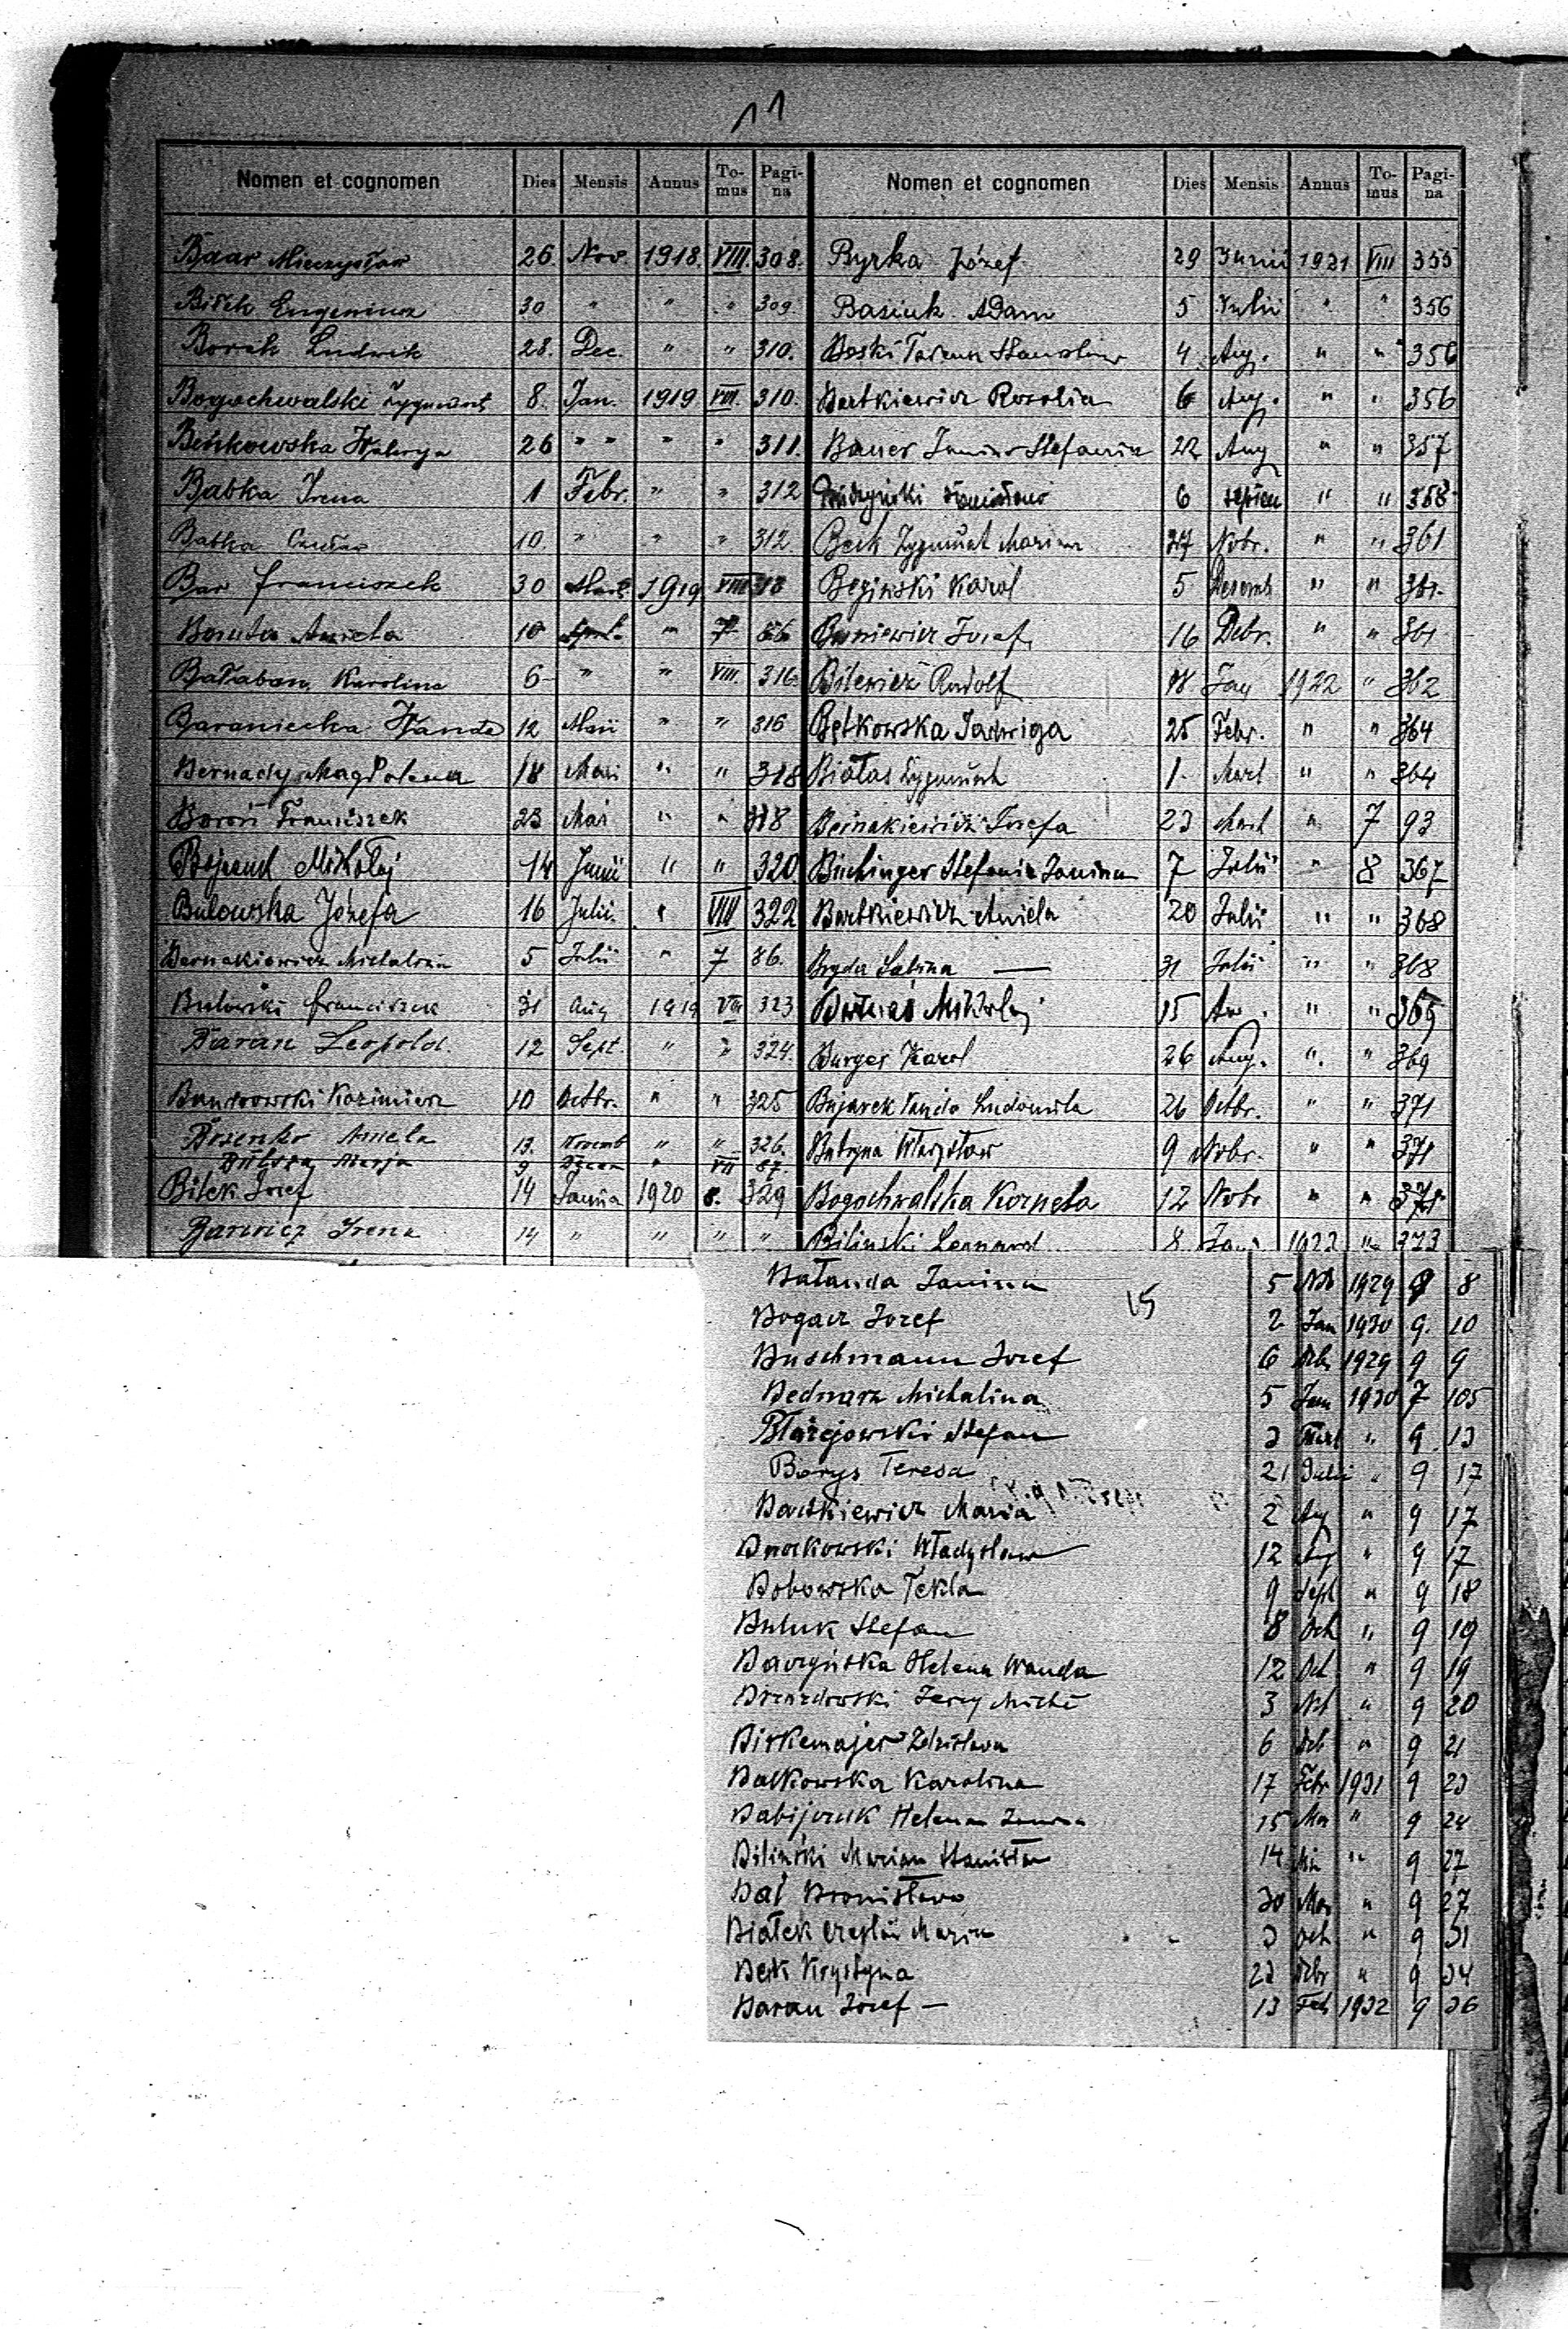 11
Nomen et cognomen Dies Mensis Annus To-mus Pagi-na
Baar Mieczysław 26. Nov. 1918. VIII. 308.
30 " " " 309.
Borek Ludwik 28. Dec. " " 310.
Bogochwalski Zygmunt 8. Jan. 1919 VIII. 310.
Beńkowska Waleryja 26 " " " " 311.
Babka Irena 1 Febr. " " 312
Babka 10. " " " 312
Bar Franciszek 30 Mart. 1919 VIII 313
Boruta Aniela 10 " 7 86
Bałaban Karolina 6 " " VIII. 316
Baraniecka Wanda 12 Maii " " 316
Bernady Magdolena 18 Maii " " 318
Boroń Franciszek 23 Mai " " 318
Mikołaj 14 Junii " " 320.
Bulowska Józefa 16 Julii " VIII 322
Bernakiewicz Michalina 5 Julii " 7 86.
Bulowski Franciszek 31 Aug 1919 VIII 323
Baran Leopold. 12 Sept. " " 324.
Bandrowski Kazimierz 10 Octbr. " " 325
Aniela 13. Novemb " " 326.
Marja 9 " VII 87.
Bilek Josef 14 1920 8. 329
Barwicz Irena 14 " " " "
Nomen et cognomen Dies Mensis Annus To-mus Pagi-na
Byrka Józef 29 Junii 1921 VIII 355
Basiuk Adam 5 Julii " " 356
4 Aug. " " 356
Bartkiewicz Rozalia 6 Aug. " " 356
Bauer Janina Stefania 22 Aug " " 357
6 " " 358
Beck Zygmunt Marian 27 Nobr. " " 361
Beginski Karol 5 Decemb " " 361.
Buniewicz Josef 16 Dcbr. " " 361
Bilewicz Rudolf 18 Jan 1922 " 362
Bętkowska Jadwiga 25 Febr. " " 364
Białas Zygmunt 1. Mart " " 364
Bernakiewicz Josefa 23 Mart " 7 93
Büchinger Stefania Janina 7 Julii " 8 367
Bartkiewicz Aniela 20 Julii " " 368
Bryda Sabina — 31 Julii " " 368
Mikołaj 15 " " 369
Burger Karol 26 Aug. " " 369
Bujarek Vanda Ludomila 26 Octbr. " " 371
Batryna Władysław 9 Nobr. " " 371
Bogochwalska Kornela 12 Nobr " " 371
Bilinski Leonard 8 " 373
Bałanda Janina 5 1929 9 8
15
Bogacz Jozef 2 Jan 1930 9. 10
Buschmann Josef 6 1929 9 9
Bednarz Michalina 5 Jan 1930 7 105
Błażejowski Stefan 3 Mart " 9 13
Borys Teresa 21 Julii " 9 17
Bartkiewicz Maria 2 Aug " 9 17
Władysław 12 Aug " 9 17
Bobowska Tekla 9 Sept " 9 18
Buluk Stefan 8 Oct " 9 19
Baczyńska Helena Wanda 12 Oct " 9 19
Jerzy 3 " 9 20
Birkemajer Zdzisława 6 " 9 21
Batkowska Karolina 17 Febr 1931 9 23
Babijczuk Helena 15 Mar " 9 24
Biliński Marian Stanisław 14 " 9 27
Bał Bronisława 30 " 9 27
Białek Maria 3 Oct " 9 31
Beck Krystyna 23 " 9 34
Baran Jozef — 13 Feb 1932 9 36